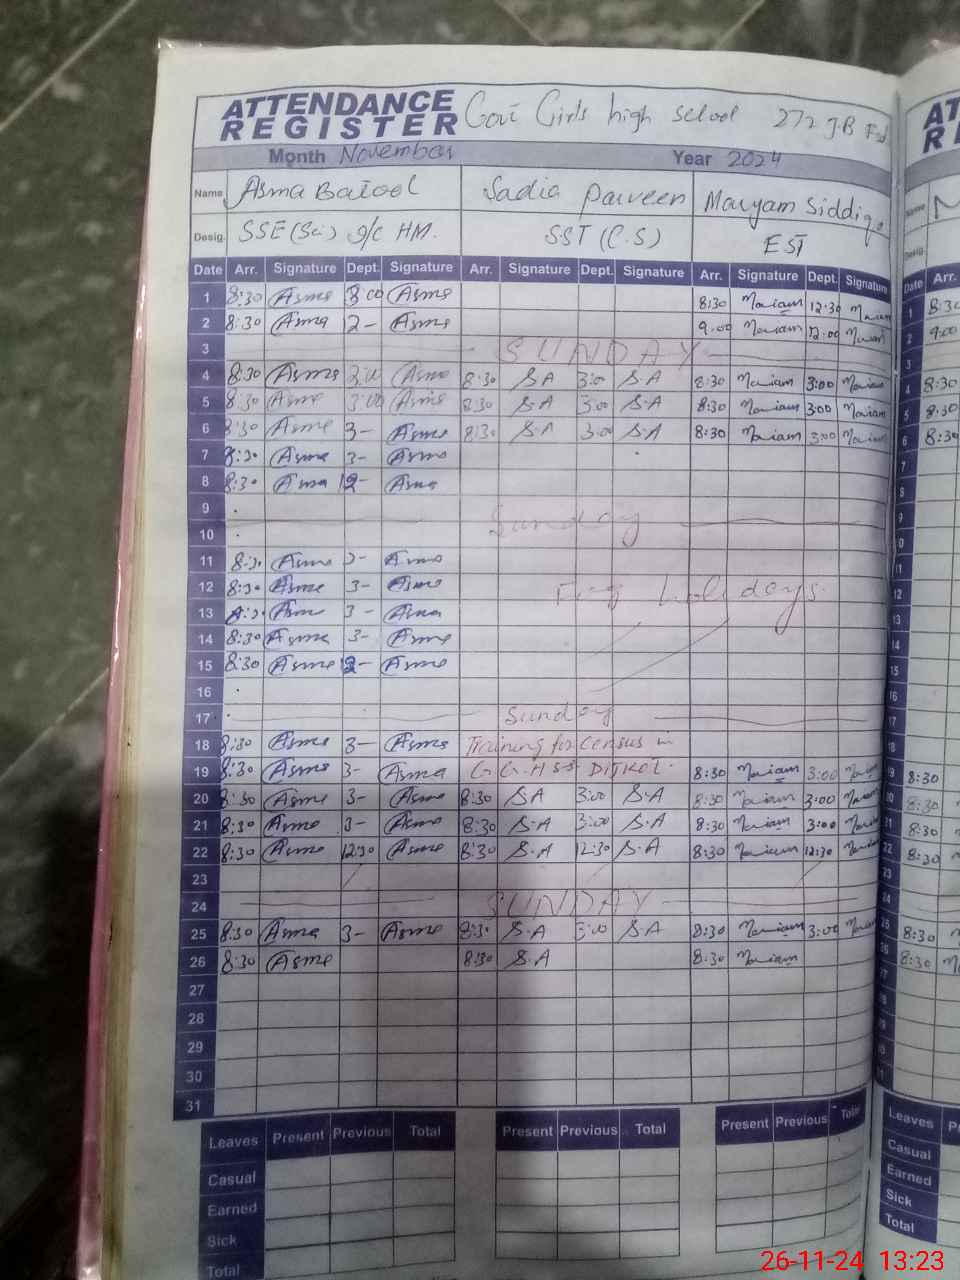 ATTENDANCE REGISTER Govt Girls high school 272 J.B
Month November Year 2024
Name Asma Batool Sadia Parveen Maryam Siddiqa
Desig. SSE (Sci) I/C HM. SST (C.S) EST
Date Arr. Signature Dept. Signature Arr. Signature Dept. Signature Arr. Signature Dept. Signature
1 8:30 Asma 3:00 Asma 8:30 Mariam 12:30 Mariam
2 8:30 Asma 2- Asma 9:00 Mariam 12:00 Mariam
3 SUNDAY
4 8:30 Asma 3:00 Asma 8:30 S.A 3:00 S.A 8:30 Mariam 3:00 Mariam
5 8:30 Asma 3:00 Asma 8:30 S.A 3:00 S.A 8:30 Mariam 3:00 Mariam
6 8:30 Asma 3- Asma 8:30 S.A 3:00 S.A 8:30 Mariam 3:00 Mariam
7 8:30 Asma 3- Asma
8 8:30 Asma 12- Asma
9
10 Sunday
11 8:30 Asma 3- Asma
12 8:30 Asma 3- Asma Fog holidays.
13 8:30 Asma 3- Asma
14 8:30 Asma 3- Asma
15 8:30 Asma Asma
16
17 Sunday
18 8:30 Asma 3- Asma Training for Census in
19 8:30 Asma 3- Asma G.G.H.S.S 8:30 Mariam 3:00 Mariam
20 8:30 Asma 3- Asma 8:30 S.A 3:00 S.A 8:30 Mariam 3:00 Mariam
21 8:30 Asma 3- Asma 8:30 S.A 3:00 S.A 8:30 Mariam 3:00 Mariam
22 8:30 Asma 12:30 Asma 8:30 S.A 12:30 S.A 8:30 Mariam 12:30 Mariam
23
24 SUNDAY
25 8:30 Asma 3- Asma 8:30 S.A 3:00 S.A 8:30 Mariam 3:00 Mariam
26 8:30 Asma 8:30 S.A 8:30 Mariam
27
28
29
30
31
Leaves Present Previous Total Present Previous Total Present Previous Total
Casual
Earned
Sick
Total
Date Arr.
8:30
9:00
4 8:30
5 8:30
6 8:30
19 8:30
20 8:30
21 8:30
22 8:30
25 8:30
26 8:30
Leaves
Casual
Earned
Sick
Total
26-11-24 13:23